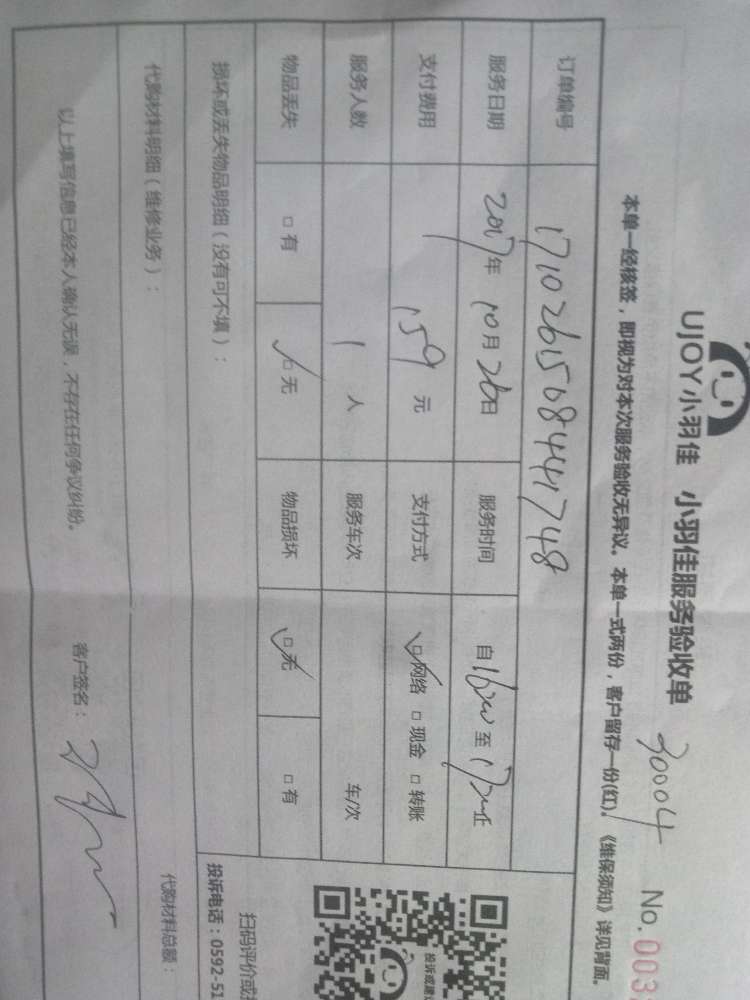 UJOY小羽佳 小羽佳服务验收单
30004 No.003
本单一经核签，即视为对本次服务验收无异议。本单一式两份，客户留存一份(红)。《维保须知》详见背面。
订单编号 171026150844 1748
服务日期 2017年10月26日 服务时间 自16:00至17:00止
支付费用 159元 支付方式 ☑网络 □现金 □转账
服务人数 1人 服务车次 车/次
物品丢失 □有 ☑无 物品损坏 ☑无 □有
损坏或丢失物品明细（没有可不填）：
扫码评价或
投诉或建
投诉电话：0592-51
代购材料明细（维修业务）： 代购材料总额：
以上填写信息已经本人确认无误，不存在任何争议纠纷。 客户签名：